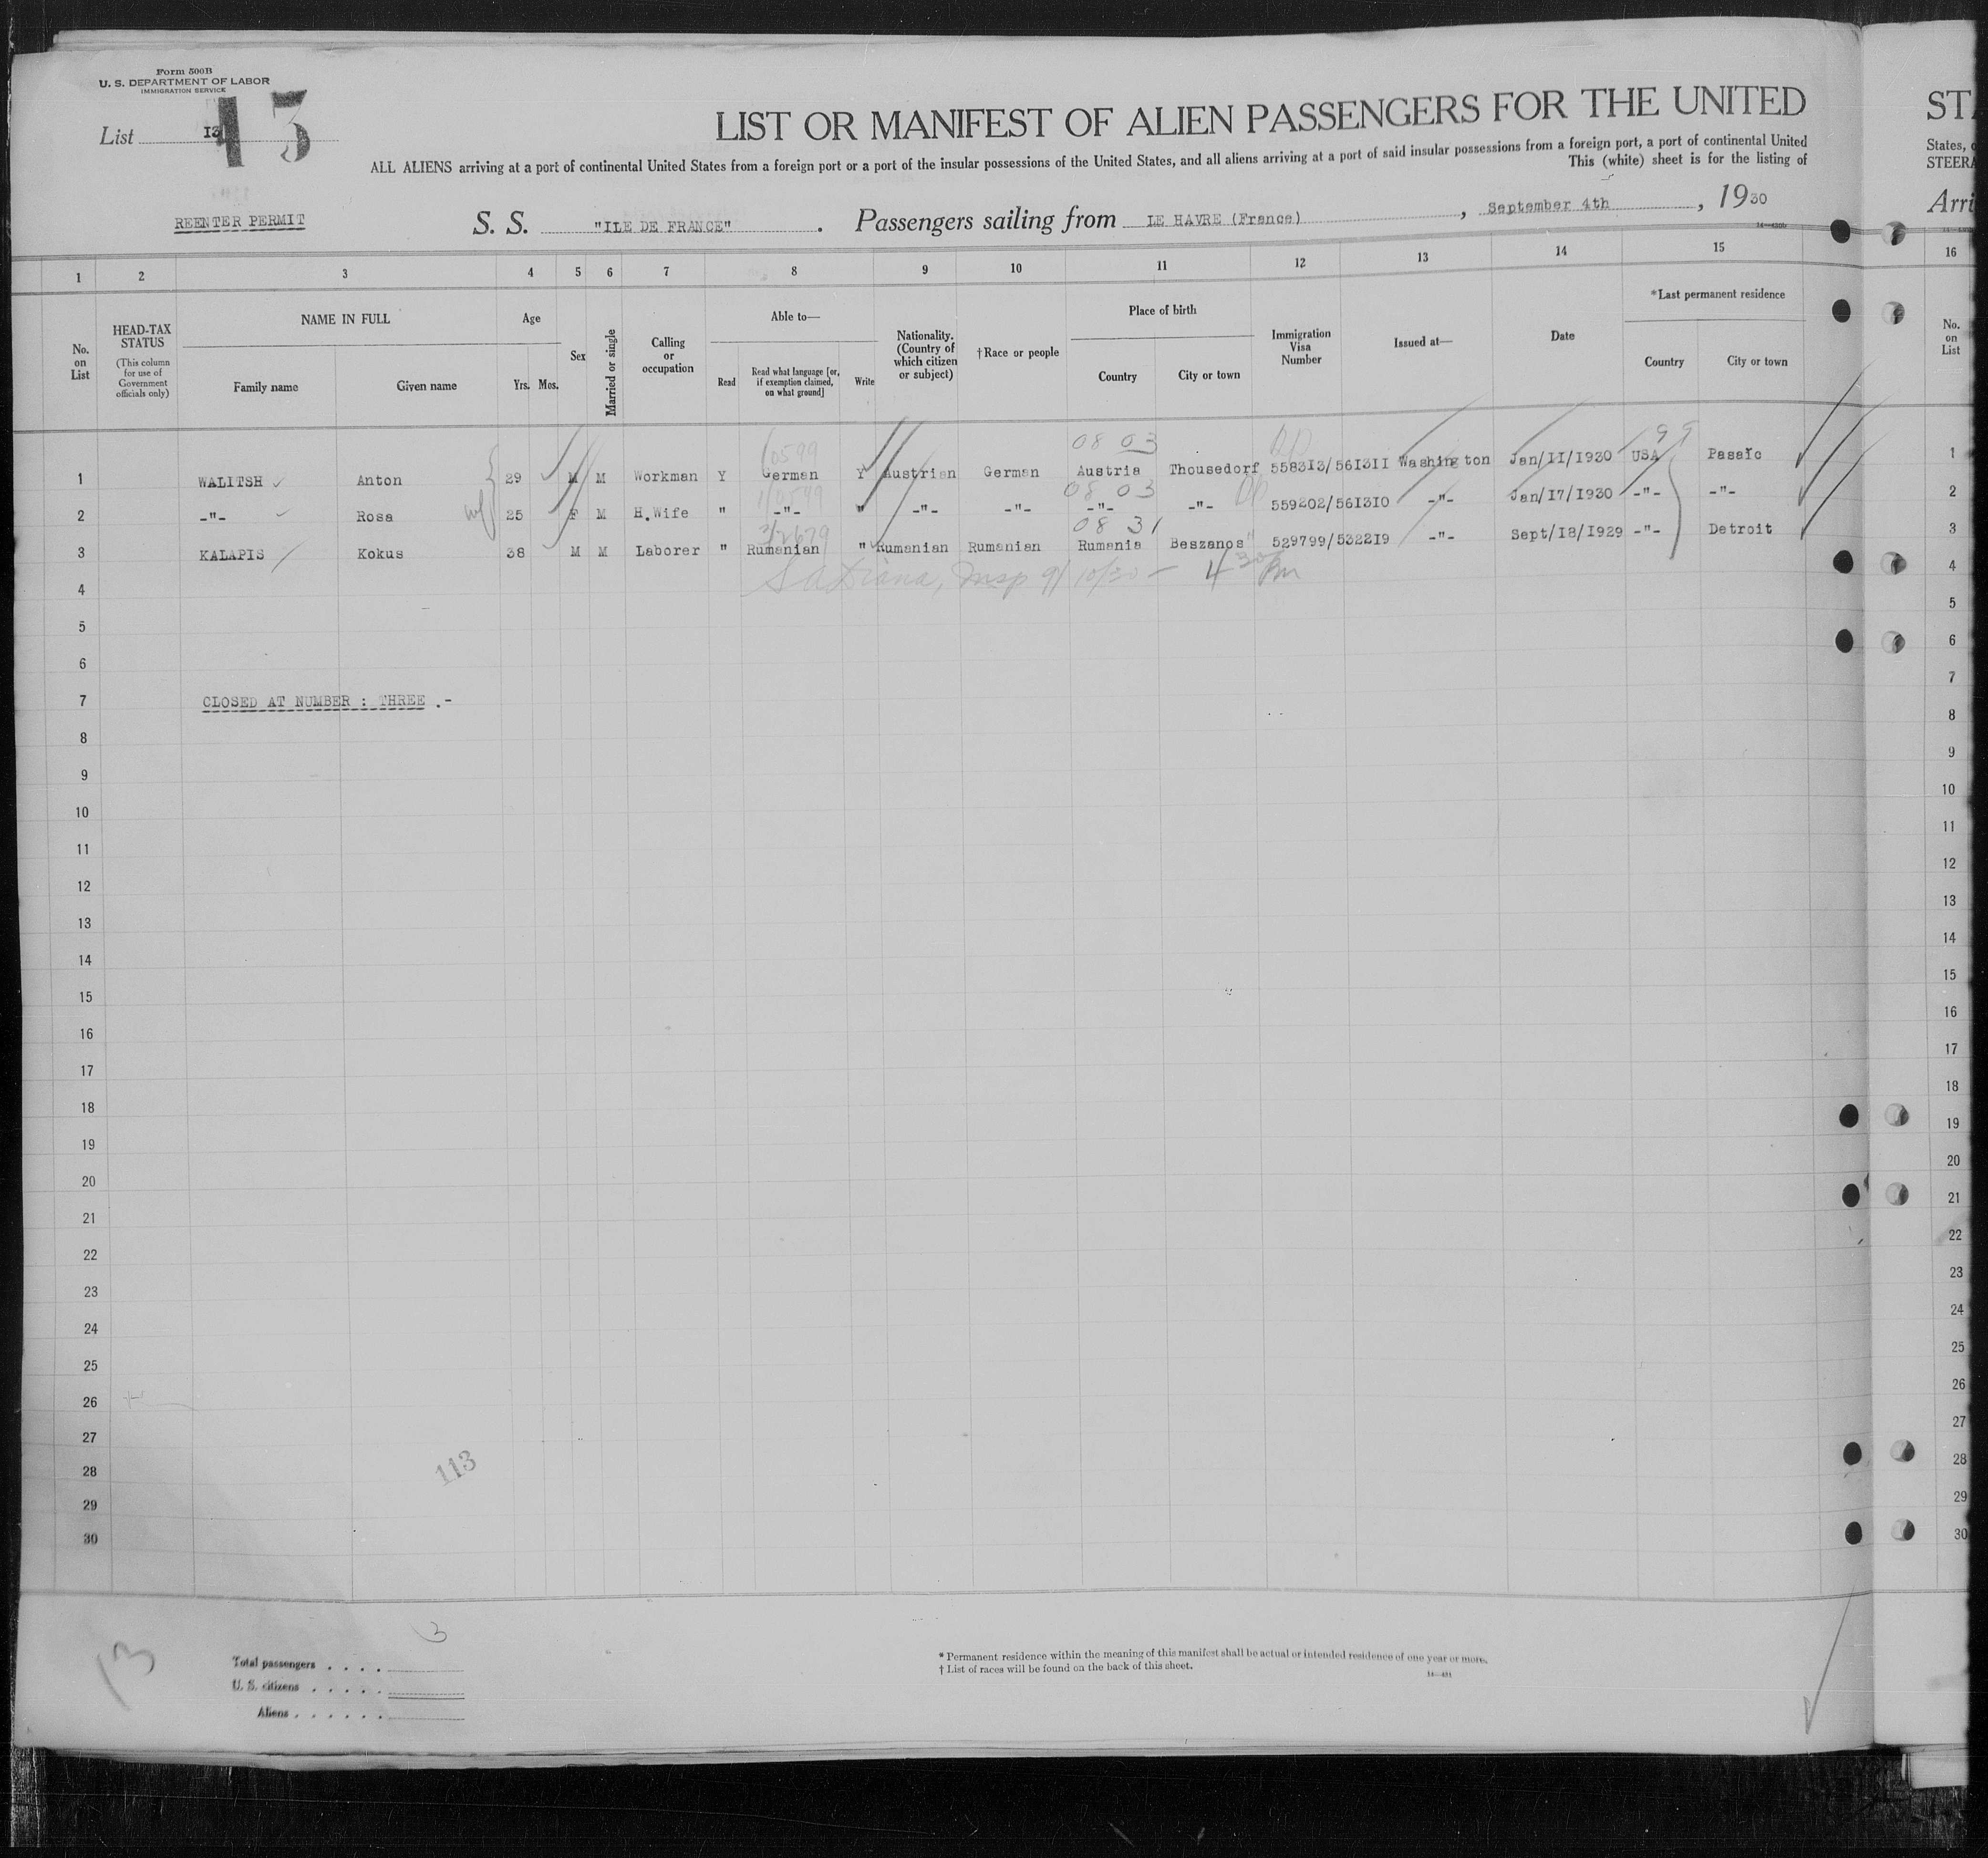 Form 500B
U. S. DEPARTMENT OF LABOR
IMMIGRATION SERVICE
List 13
13
LIST OR MANIFEST OF ALIEN PASSENGERS FOR THE UNITED
ST
ALL ALIENS arriving at a port of continental United States from a foreign port or a port of the insular possessions of the United States, and all aliens arriving at a port of said insular possessions from a foreign port, a port of continental United
States,
This (white) sheet is for the listing of
STEERA
REENTER PERMIT
S. S. "ILE DE FRANCE". Passengers sailing from LE HAVRE (France), September 4th, 1930
Arri
1 2 3 4 5 6 7 8 9 10 11 12 13 14 15 16
No. on List
HEAD-TAX STATUS (This column for use of Government officials only)
NAME IN FULL
Family name
Given name
Age
Yrs. Mos.
Sex
Married or single
Calling or occupation
Able to—
Read
Read what language [or, if exemption claimed, on what ground]
Write
Nationality. (Country of which citizen or subject)
†Race or people
Place of birth
Country
City or town
Immigration Visa Number
Issued at—
Date
*Last permanent residence
Country
City or town
No. on List
08 03 99
1 WALITSH Anton 29 M M Workman Y German Y Austrian German Austria Thousedorf 558313/561311 Washington Jan/11/1930 USA Passaic 1
08 03
2 -"- Rosa 25 F M H.Wife " -"- " -"- -"- -"- -"- 559202/561310 -"- Jan/17/1930 -"- -"- 2
wf
08 31
3 KALAPIS Kokus 38 M M Laborer " Rumanian " Rumanian Rumanian Rumania Beszanos 529799/532219 -"- Sept/18/1929 -"- Detroit 3
4 4
5 5
6 6
7 CLOSED AT NUMBER : THREE .- 7
8 8
9 9
10 10
11 11
12 12
13 13
14 14
15 15
16 16
17 17
18 18
19 19
20 20
21 21
22 22
23 23
24 24
25 25
26 26
27 27
28 28
29 29
30 30
113
13
3
Total passengers . . . .
U. S. citizens . . . . .
Aliens . . . . . .
* Permanent residence within the meaning of this manifest shall be actual or intended residence of one year or more.
† List of races will be found on the back of this sheet.